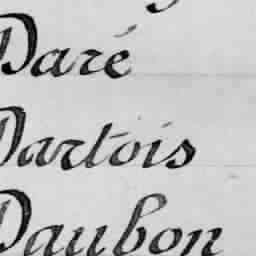 Daré
Dartois
Daubon